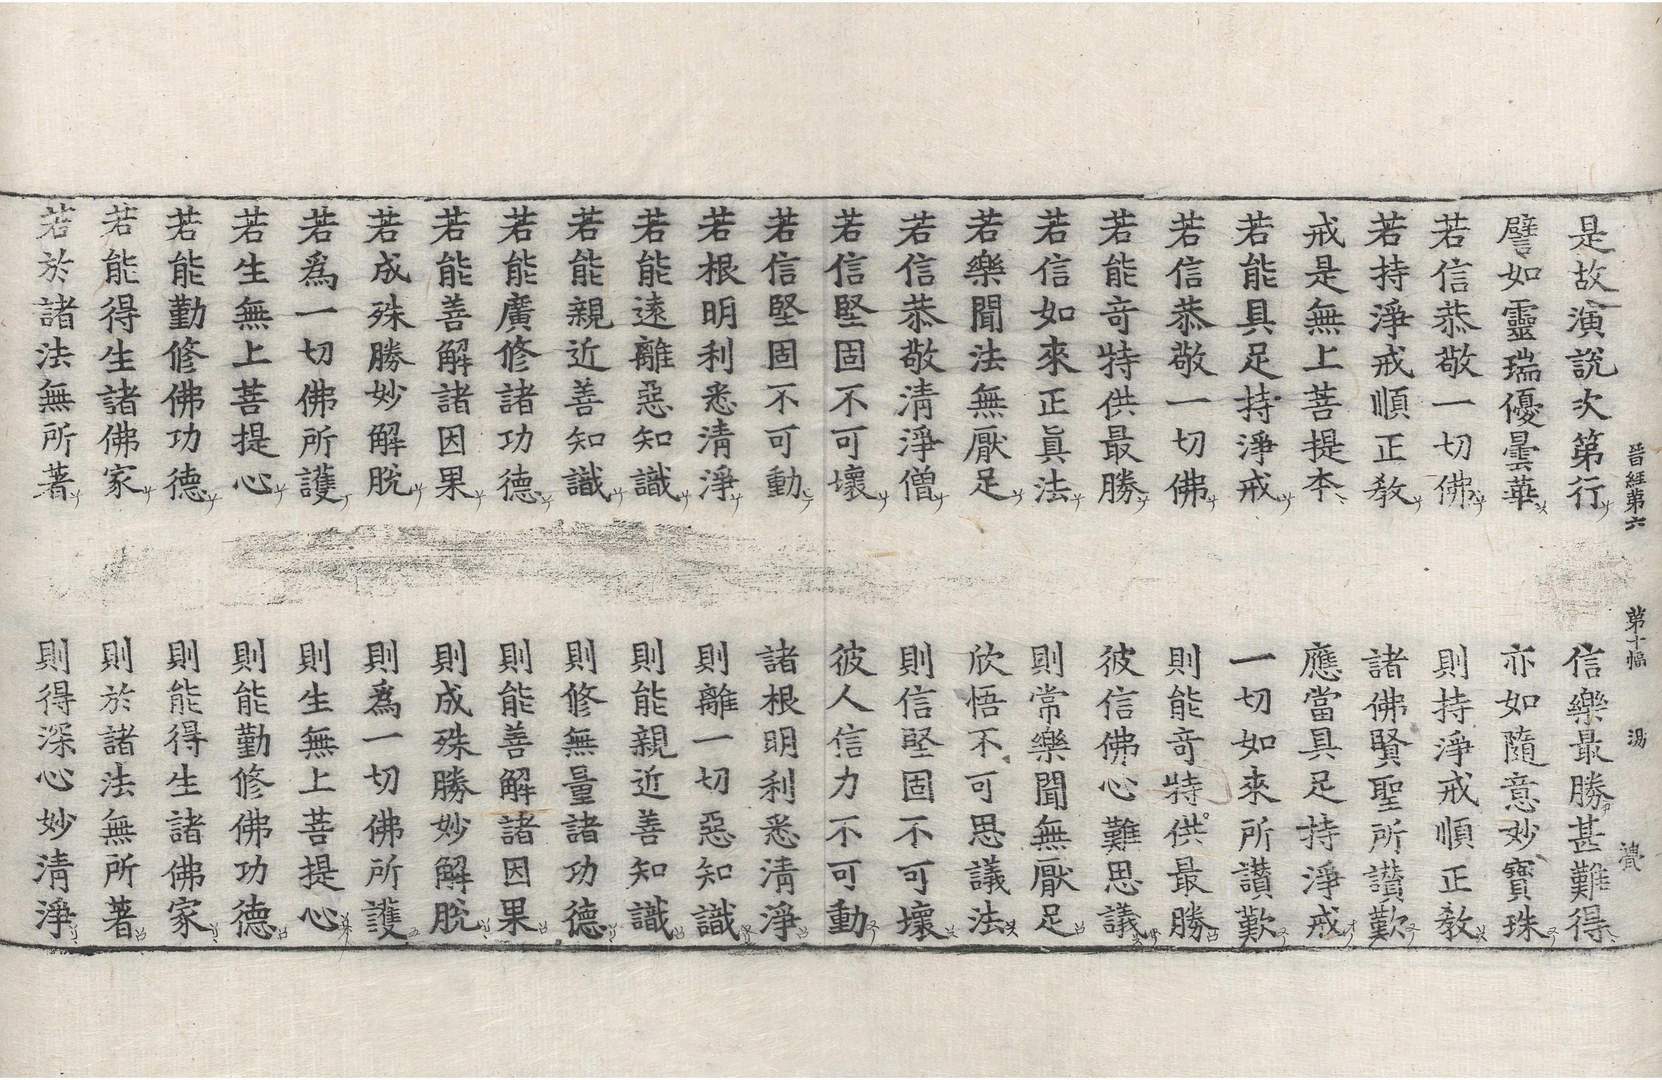 晉經第六 第十幅 湯
是故演說次第行 信樂最勝甚難得
譬如靈瑞優曇華 亦如隨意妙寶珠
若信恭敬一切佛 則持淨戒順正教
若持淨戒順正教 諸佛賢聖所讃歎
戒是無上菩提夲 應當具足持淨戒
若能具足持淨戒 一切如來所讃歎
若信恭敬一切佛 則能奇特供最勝
若能奇特供最勝 彼信佛心難思議
若信如來正眞法 則常樂聞無厭足
若樂聞法無厭足 欣悟不可思議法
若信恭敬清淨僧 則信堅固不可壞
若信堅固不可壞 彼人信力不可動
若信堅固不可動 諸根明利悉清淨
若根明利悉清淨 則離一切惡知識
若能遠離惡知識 則能親近善知識
若能親近善知識 則修無量諸功德
若能廣修諸功德 則能善解諸因果
若能善解諸因果 則成殊勝妙解脫
若成殊勝妙解脫 則爲一切佛所護
若爲一切佛所護 則生無上菩提心
若生無上菩提心 則能勤修佛功德
若能勤修佛功德 則能得生諸佛家
若能得生諸佛家 則於諸法無所著
若於諸法無所著 則得深心妙清淨